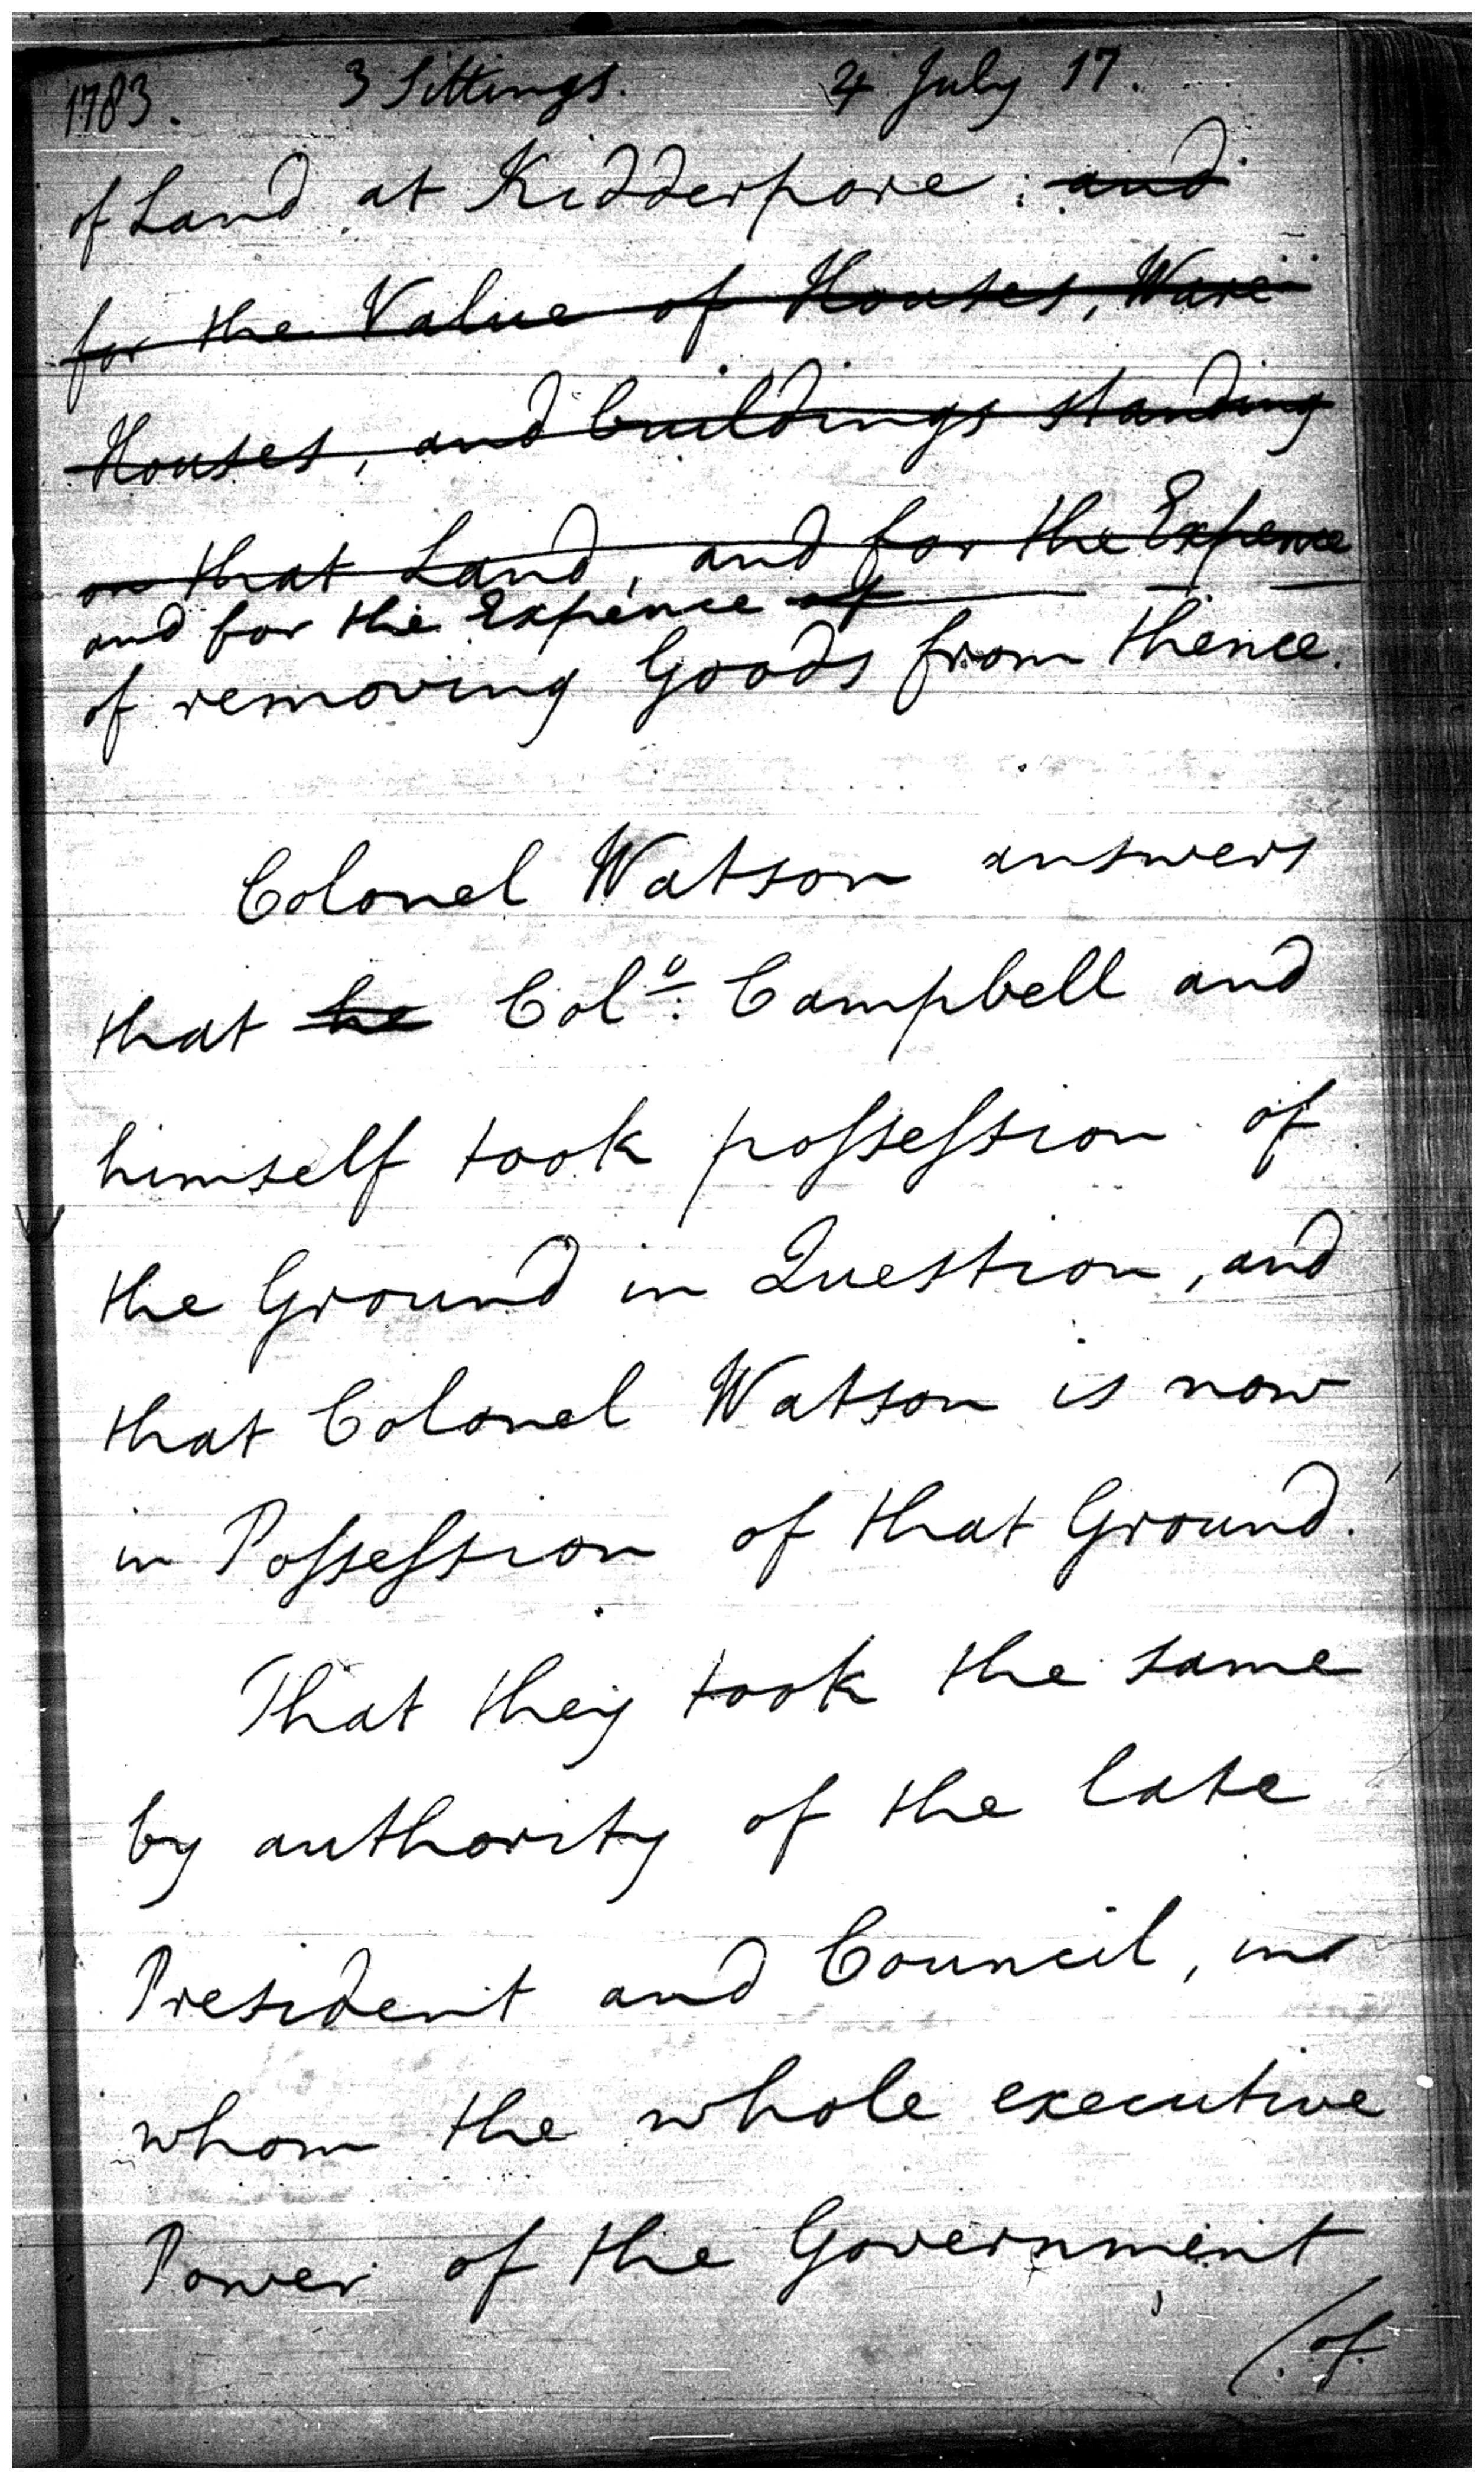 1783. 3 Sittings. 4 July 17.
of Land at Kidderpore : and
for the Value of Houses, Ware
Houses, and buildings standing
on that Land, and for the Expence
and for the Expence of
of removing Goods from thence.
Colonel Watson answers
that he Colo. Campbell and
himself took possession of
the Ground in Question, and
that Colonel Watson is now
in Possession of that Ground.
That they took the same
by authority of the late
President and Council, in
whom the whole executive
Power of the Government
(of